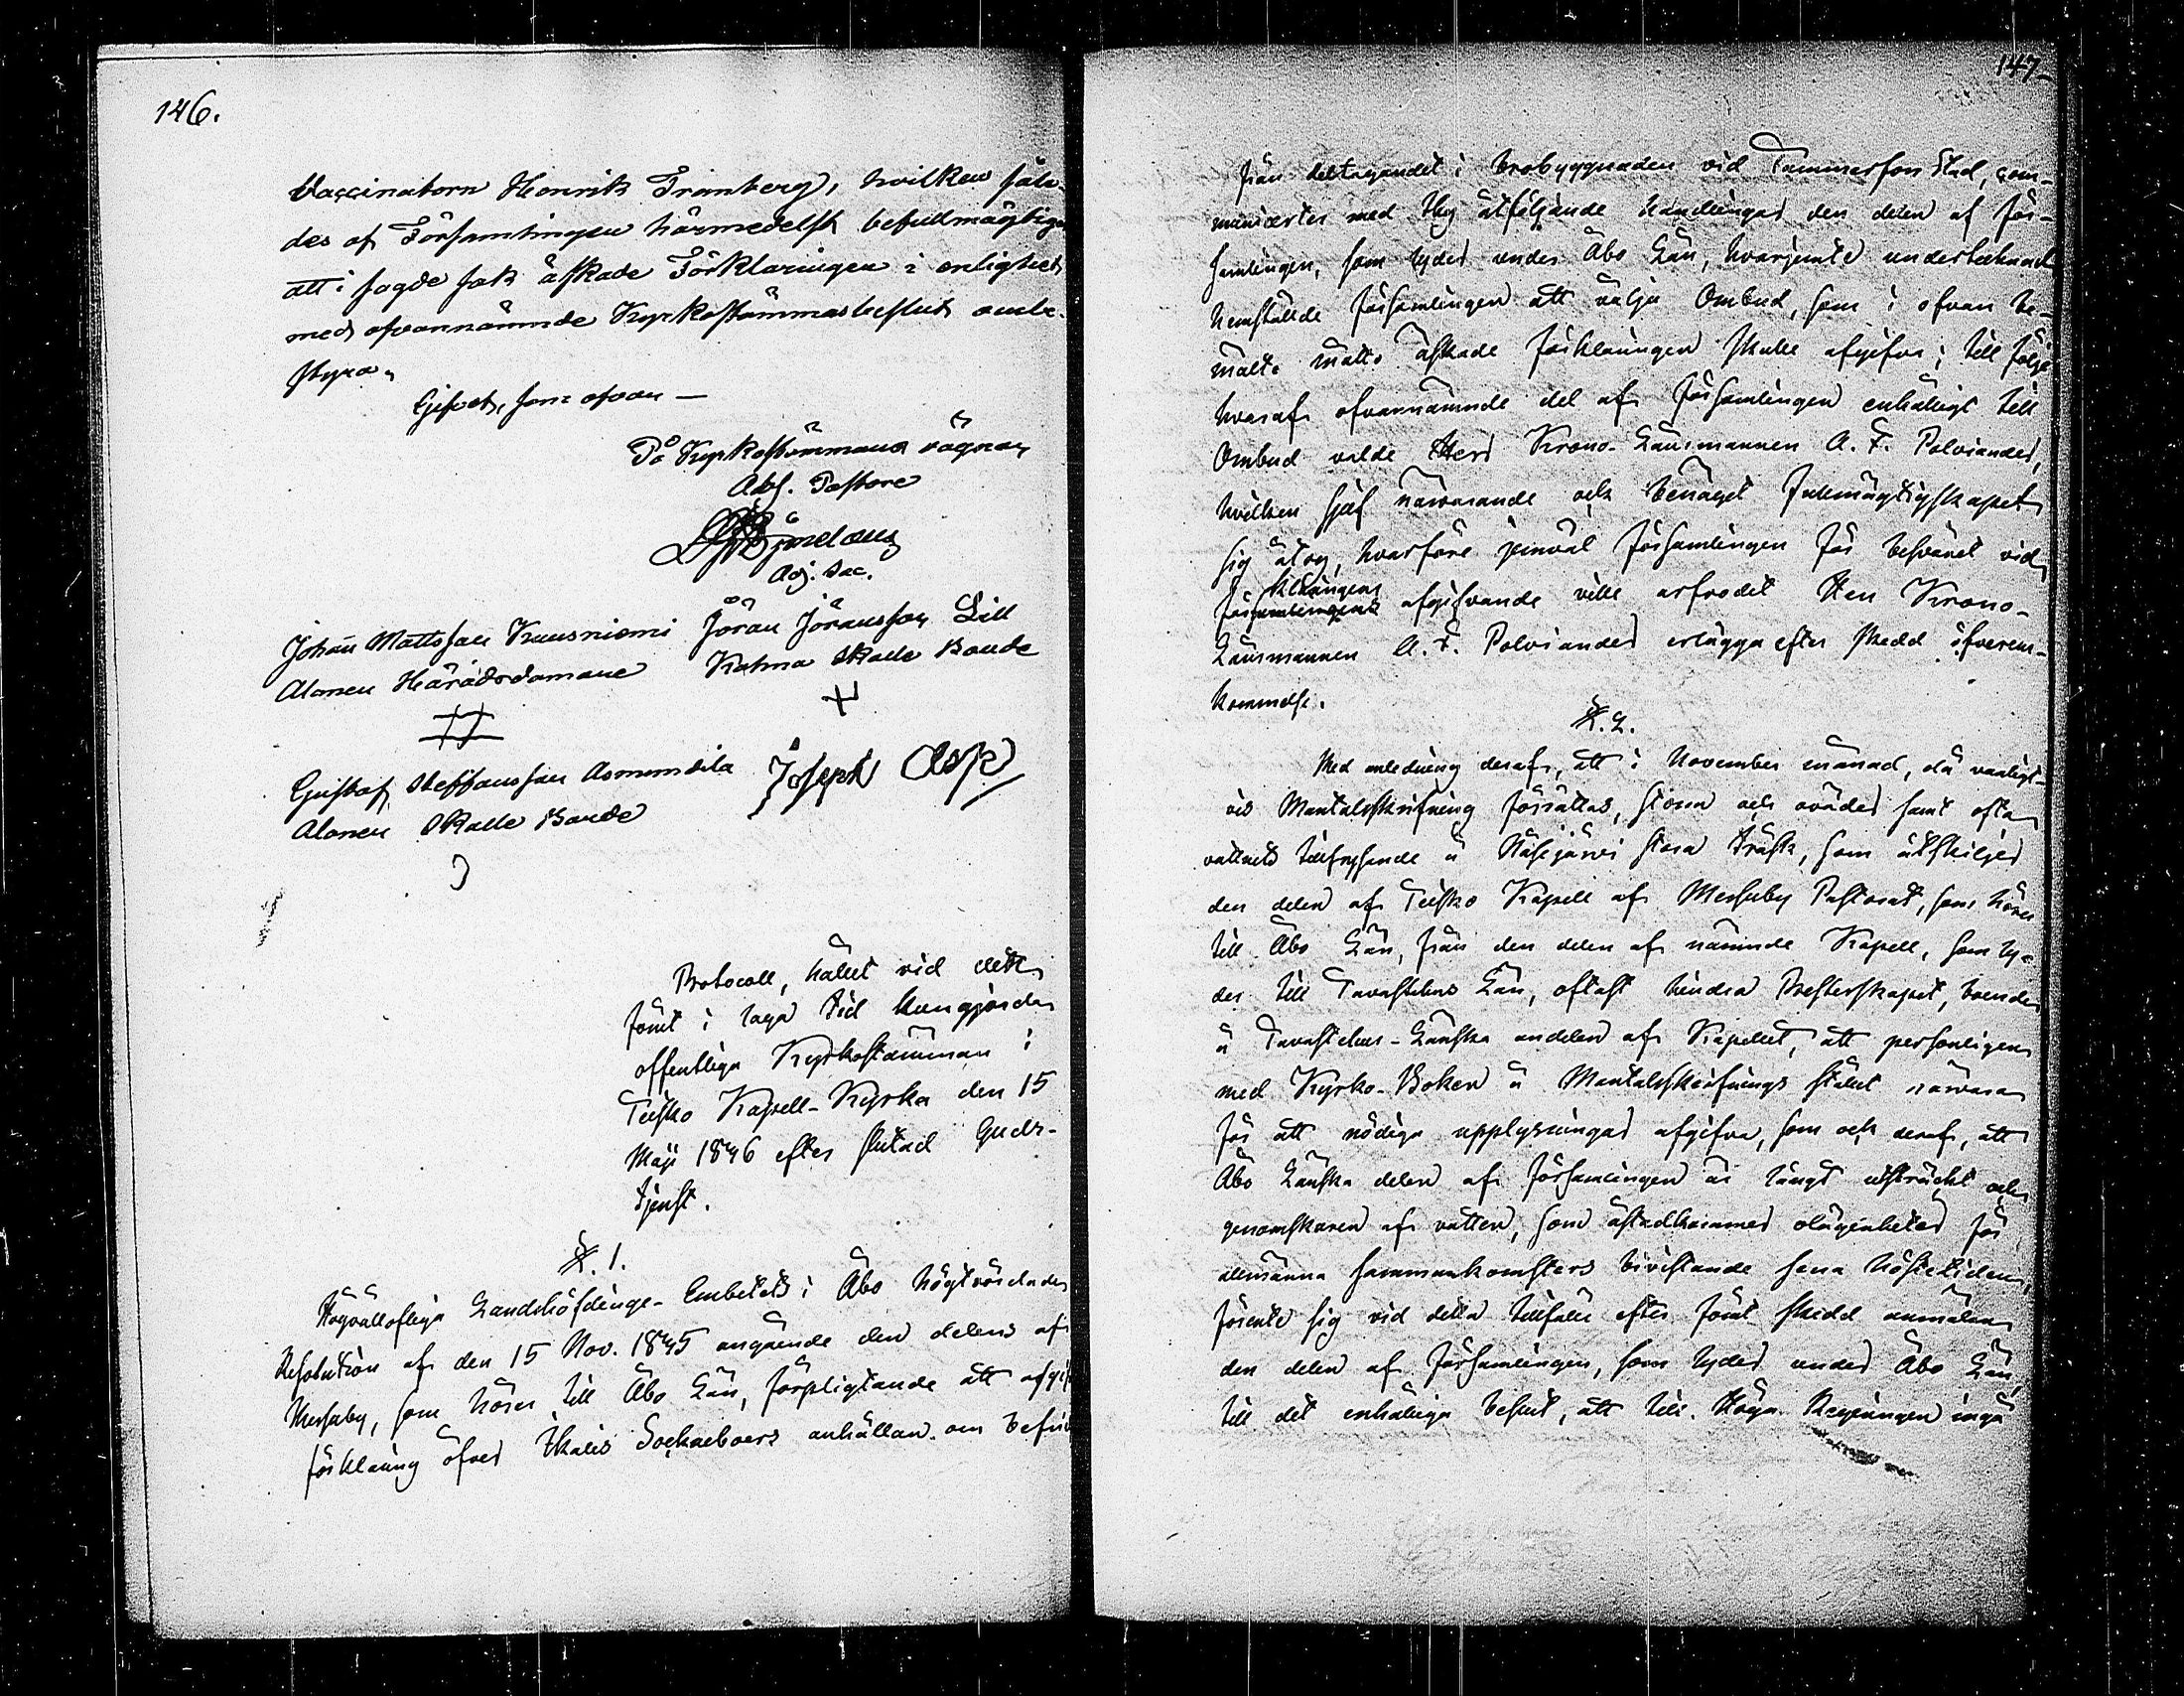 146.
Vaccinatorn Henrik Granberg, hvilken sålu-
des af Församlingen härmedelst befullmägtiga
att i sagde sak äskade Förklaringen i enlighet
med ofvannämnde Kyrkostämmasbeslut ombe-
styra.
Gifvet, som ofvan —
På Kyrkostämmans vägnar
Abs. Pastore
Adj. Sac.
Johan Mattsson Kuusniemi Jöran Jöransson Lill
Alanen Häradsdomare Katma Skatte Bonde
Gustaf Steffansson Asmundila Joseph Asp
Alanen Skatte Bonde
Protocoll, hållet vid dett
förut i laga tid kungjorda
offentliga Kyrkostämman i
Teisko Kapell-Kyrka den 15
Maji 1846 efter slutad Guds-
tjenst.
§. 1.
Högvällofliga Landshöfdinge-Embetets i Åbo högtvördade
Resolution af den 15 Nov. 1845 angående den delens af
Messuby, som hörer till Åbo Län, förpligtande att afgif
förklaring öfver Ikalis Sockneboers anhållan om befri
147
från deltagandet i brobyggnaden vid Tammerfors Stad, com-
municertes med thy åtföljande handlingar den delen af för-
samlingen, som lyder under Åbo Län, hvarjemte undertecknad
hemställde församlingen att välja Ombud, som i ofvan be-
mält. måtto äskade förklaringen skulle afgifva; till följe
hvaraf ofvannämnde del af församlingen enhälligt till
Ombud valde Herr Krono-Länsmannen A. F. Polviander,
hvilken sjelf närvarande och benäget fullmägtigskapet
sig åtog, hvarföre jemväl församlingen för besväret vid
klaringens
församlingens afgifvande ville arfvodet Herr Krono-
Länsmannen A. F. Polviander erlägga efter skedd öfverens-
kommelse.
§. 2.
Med anledning deraf, att i November månad, då vanligt-
vis Mantalsskrifning förrättas, storm och oväder samt ofta
vattnets tillfrysande å Näsijärvi stora träsk, som åtskiljer
den delen af Teisko Kapell af Messuby Pastorat, som hörer
till Åbo Län, från den delen af nämnde Kapell, som ly-
der till Tavastehus Län, oftast hindra Presterskapet, boende
å Tavastehus-Länska andelen af Kapellet, att personligen
med Kyrko-Boken å Mantalsskrifnings stället närvara
för att nödiga upplysningar afgifva, som ock deraf, att
Åbo Länska delen af församlingen är långt utsträckt och
genomskaren af vatten, som åstadkommer olägenheter för
allmänna sammankomsters bivistande sena hösttiden,
förente sig vid detta tillfälle efter förut skedd anmälan
den delen af församlingen, som lyder under Åbo Län,
till det enhälliga beslut, att till Höga Regeringen ingå